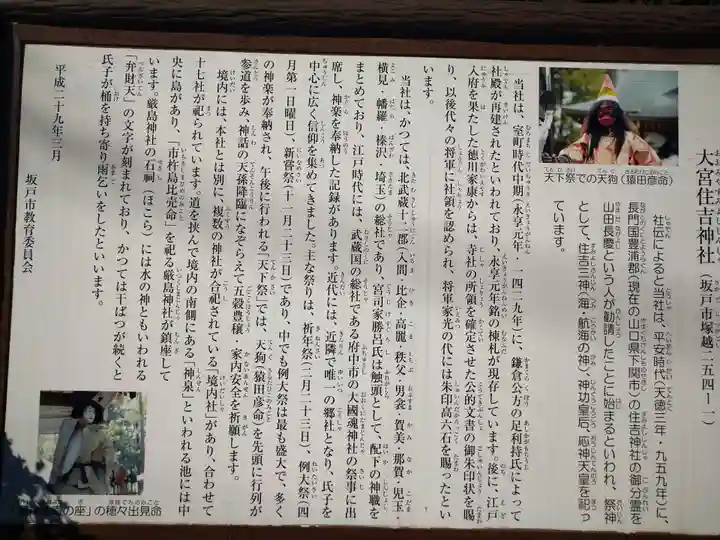 大宮住吉神社(坂戸市塚越二五四ー一)
社伝によると当社は、平安時代(天徳三年・九五九年)に、
長門国豊浦郡(現在の山口県下関市)の住吉神社の御分霊を
山田長慶という人が勧請したことに始まるといわれ、祭神
として、住吉三神(海・航海の神)、神功皇后、応神天皇を祀っ
ています。
天下祭での天狗(猿田彦命)
当社は、室町時代中期(永享元年 一四二九年)に、鎌倉公方の足利持氏によって
社殿が再建されたといわれており、永享元年銘の棟札が現存しています。後に、江戸
入府を果たした徳川家康からは、寺社の所領を確定させた公的文書の御朱印状を賜
り、以後代々の将軍に社領を認められ、将軍家光の代には朱印高六石を賜ったとい
います。
当社は、かつては、北武蔵十二郡(入間・比企・高麗・秩父・男衾・賀美・那賀・児玉・
横見・幡羅・榛沢・埼玉)の総社であり、宮司家勝呂氏は触頭として、配下の神職を
まとめており、江戸時代には、武蔵国の総社である府中市の大國魂神社の祭事に出
席し、神楽を奉納した記録があります。近代には、近隣で唯一の郷社となり、氏子を
中心に広く信仰を集めてきました。主な祭りは、祈年祭(二月二十三日)、例大祭(四
月第一日曜日)、新嘗祭(十一月二十三日)であり、中でも例大祭は最も盛大で、多く
の神楽が奉納され、午後に行われる「天下祭」では、天狗(猿田彦命)を先頭に行列が
参道を歩み、神話の天孫降臨になぞらえて五穀豊穣・家内安全を祈願します。
境内には、本社とは別に、複数の神社が合祀されている「境内社」があり、合わせて
十七社が祀られています。道を挟んで境内の南側にある「神泉」といわれる池には中
央に島があり、「市杵島比売命」を祀る厳島神社が鎮座して
います。厳島神社の石祠(ほこら)には水の神ともいわれる
「弁財天」の文字が刻まれており、かつては干ばつが続くと
氏子が桶を持ち寄り雨乞いをしたといいます。
平成二十九年三月
坂戸市教育委員会
の座」の穂々出見命